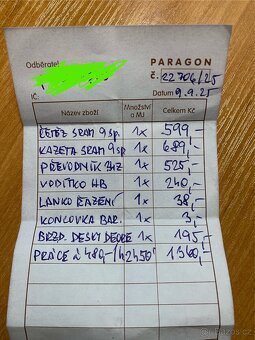 Odběratel
PARAGON
č. 22706/25
IČ:
Datum 9.9.25
Název zboží Množství a MJ Celkem Kč
ŘETĚZ SRAM 9sp. 1x 599,-
KAZETA SRAM 9sp 1x 689,-
PŘEVODNÍK 34z 1x 525,-
VODÍTKO HB 1x 240,-
LANKO ŘAZENÍ 1x 38,-
KONCOVKA BAR. 1x 3,-
BRZD. DESKY DEORE 1x 195,-
PRÁCE á 480,-/h 2h50' 1360,-